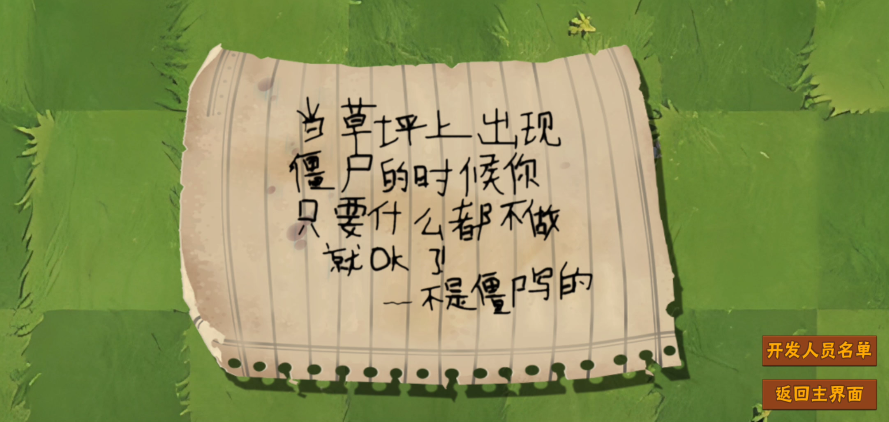 当草坪上出现
僵尸的时候你
只要什么都不做
就OK了!
——不是僵尸写的
开发人员名单
返回主界面